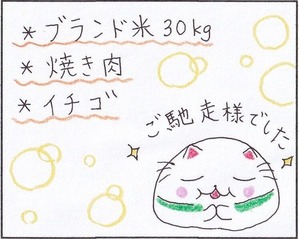 * ブランド米30kg
* 焼き肉
* イチゴ
ご馳走様でした